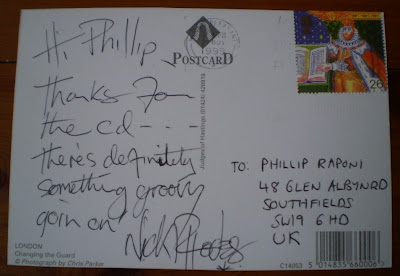 Hi, Phillip
Thanks for
the cd - - -
there's definitely
something groovy
goin on!
Nick Rhodes
POSTCARD
1999
Judges of Hastings (01424) 420919
26
TO: PHILLIP RAPONI
48 GLEN ALBYN RD
SOUTHFIELDS
SW19 6HD
UK
LONDON
Changing the Guard
© Photograph by Chris Parker
C14053
5 014835 660006